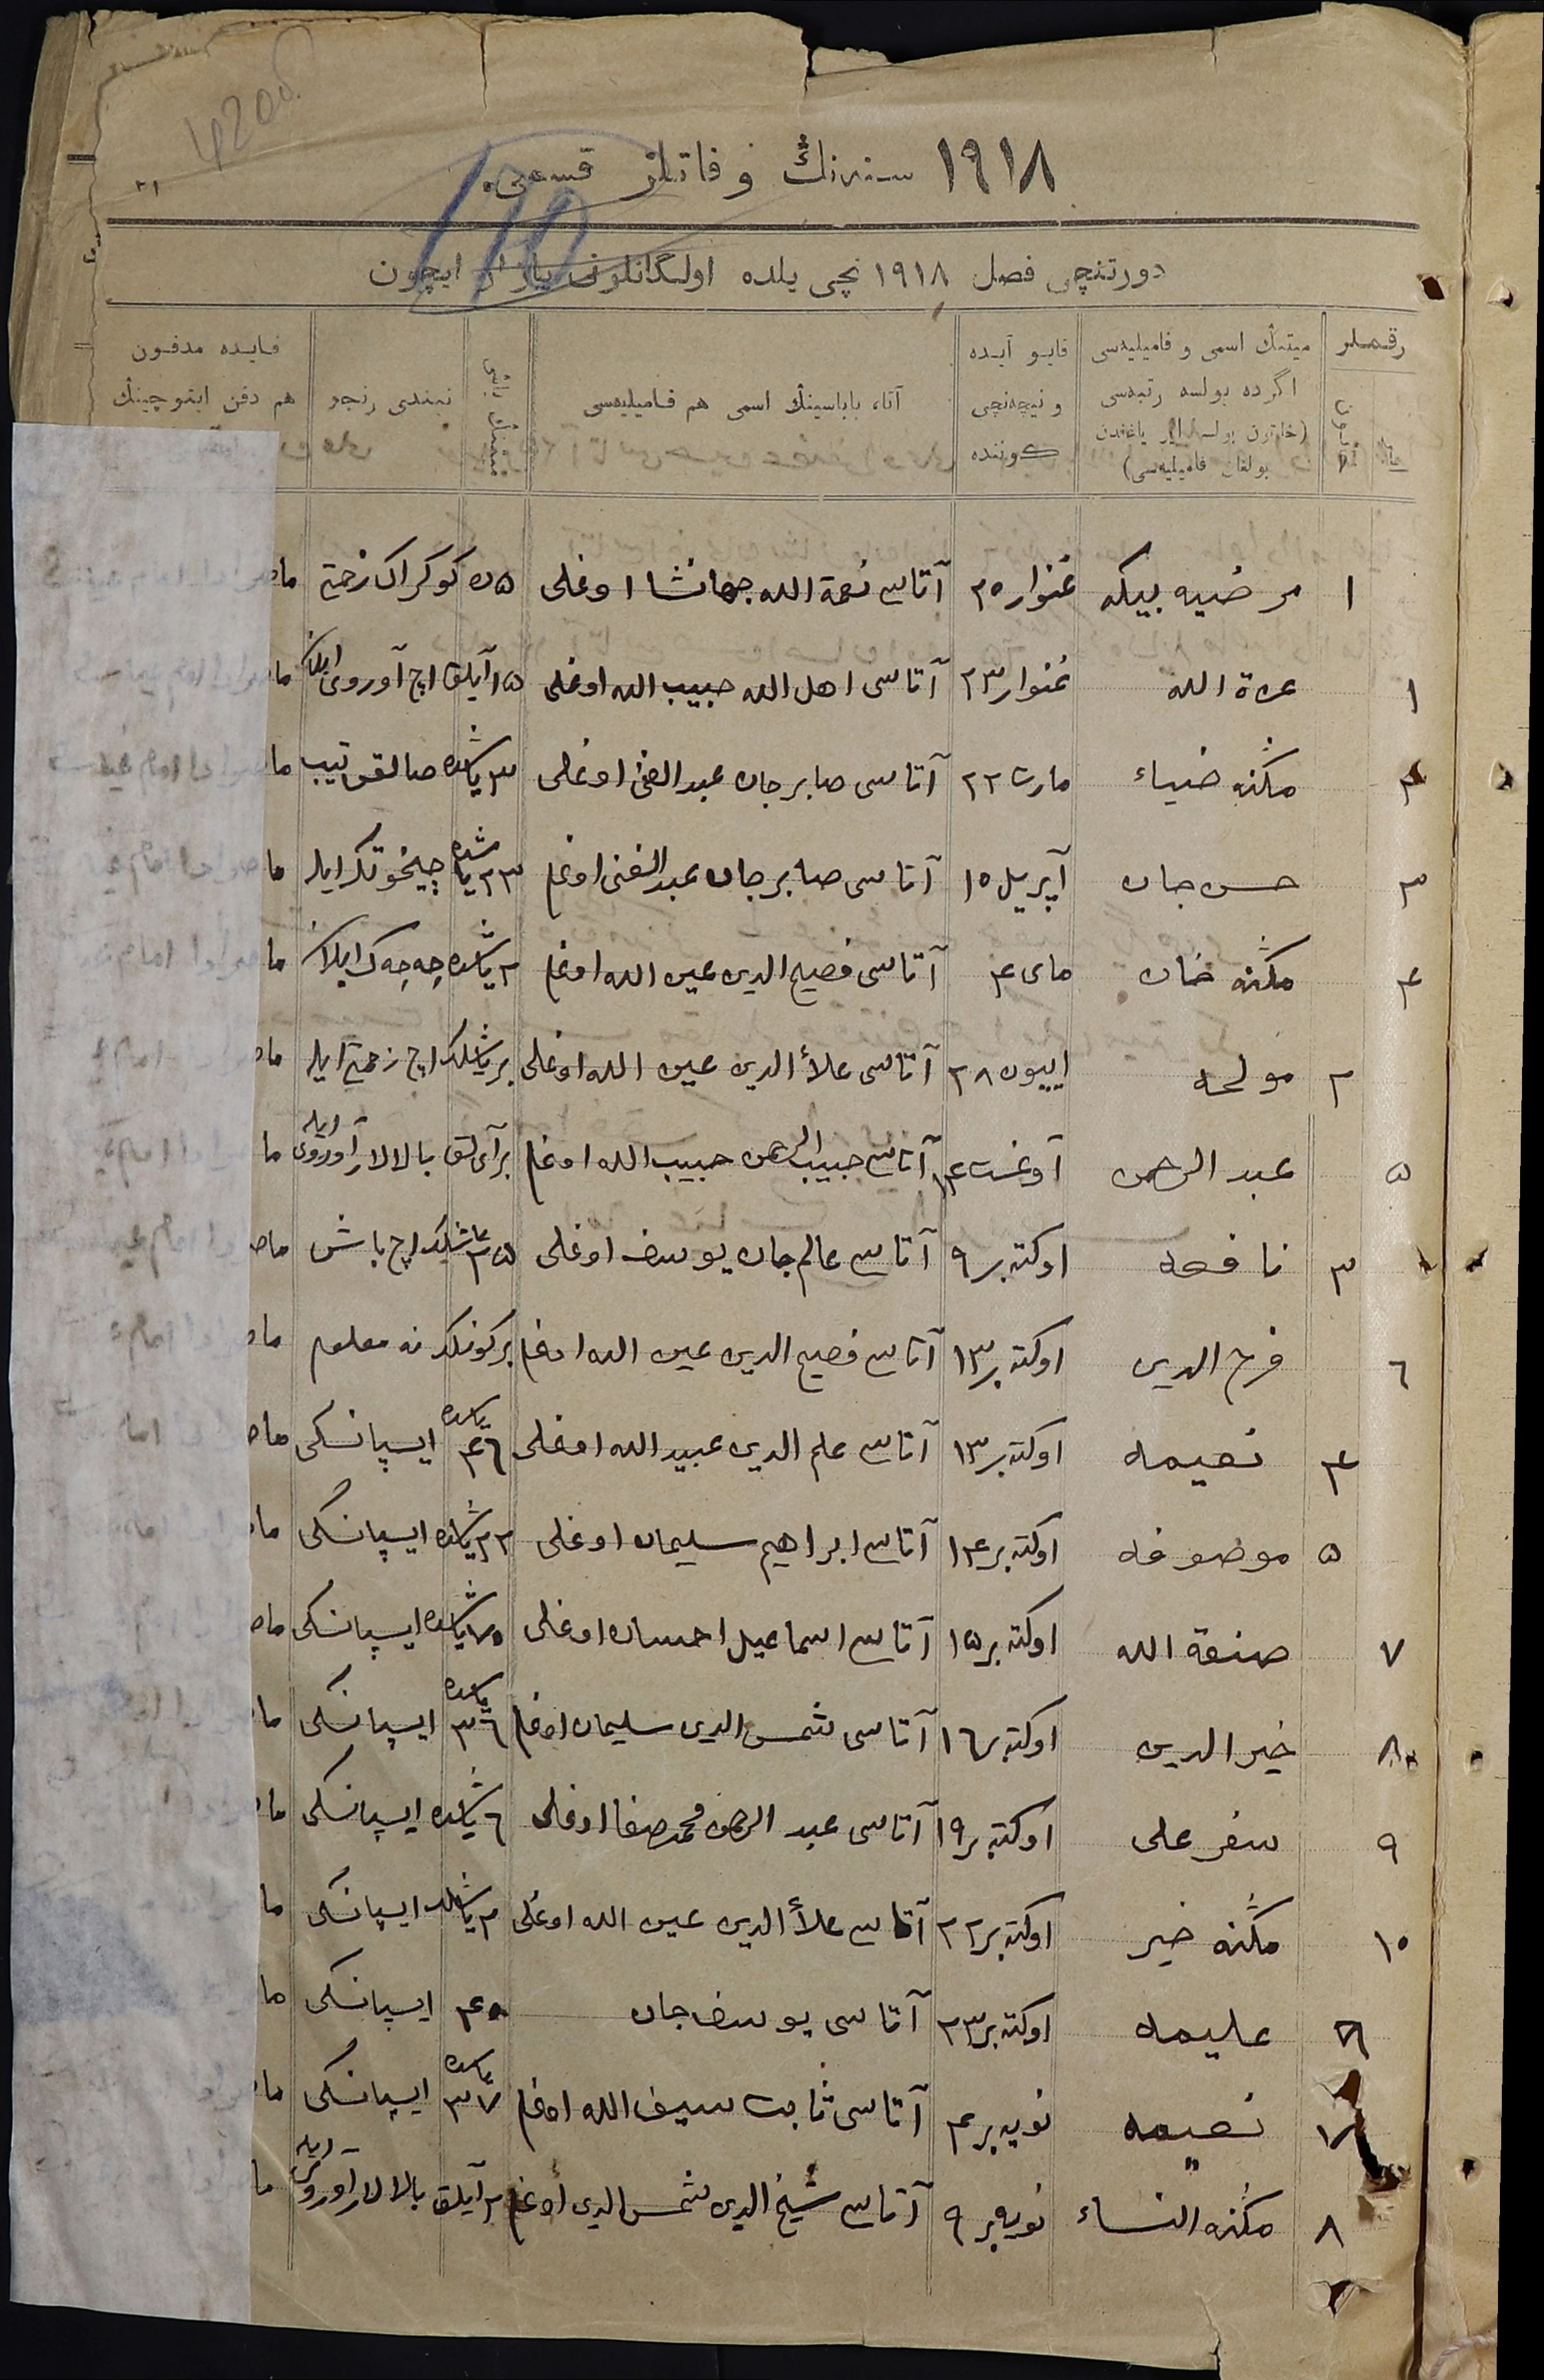 4200
١٩١٨ سنه‌نڭ وفاتلر قسمی.
٢١
دورتنچی فصل ١٩١٨ نچی یلده اولگانلرنی یازار ایچون
رقملر
میتنڭ اسمی و فامیلیه‌سی اگرده بولسه رتبه‌سی (خاتون بولسه ایر یاغندن بولغان فامیلیه‌سی)
قایو آیده و نیچه‌نچی کوننده
آتا، باباسینڭ اسمی هم فامیلیه‌سی
نیندی رنجو
قایده مدفون هم دفن ایتوچینڭ
١ مرضیه بیکه غنوار ٢٥ آتاسی نعمة الله جهانشا اوغلی ٥٥ کوکراک زحمتی ما
١ عزة الله غنوار ٢٣ آتاسی اهل الله حبیب الله اوغلی ١٥ آیلق اچ آوروی ایلان ما
٢ ضیاء مارت ٢٢ آتاسی صابرجان عبدالغنی اوغلی ٣ یاشده صالقن تیب ما
٣ حسن جان آپریل ١٥ آتاسی صابرجان عبدالغنی اوغلی ٢٣ یاشده چیخوتکه ایله ما
٤ خان مای ٤ آتاسی فصیح الدین عین الله اوغلی ٢ یاشده چه‌چه‌ک ایلان ما
٢ اییون ٢٨ آتاسی علأ الدین عین الله اوغلی بر یاشلک اچ زحمتی ایله ما
٥ عبد الرحمن آوغست ١٤ آتاسی حبیب الرحمن حبیب الله اوغلی بر آی‌لق بالالار آوروی ایله ما
٣ نافعه اوکتبر ٩ آتاسی عالم جان یوسف اوغلی ٣٥ یاشلک اچ باش ما
٦ فرح الدین اوکتبر ١٣ آتاسی فصیح الدین عین الله اوغلی بر کونلک نه معلوم ما
٤ نعیمه اوکتبر ١٣ آتاسی علم الدین عبید الله اوغلی ٤٦ یاشده ایسپانسکی ما
٥ موضوفه اوکتبر ١٤ آتاسی ابراهیم سلیمان اوغلی ٢٢ یاشده ایسپانسکی ما
٧ صنعة الله اوکتبر ١٥ آتاسی اسماعیل احسان اوغلی ٧٥ یاشده ایسپانسکی ما
٨ خیر الدین اوکتبر ١٦ آتاسی شمس الدین سلیمان اوغلی ٣٦ یاشده ایسپانسکی ما
٩ سفر علی اوکتبر ١٩ آتاسی عبد الرحمن محمد صفا اوغلی ٦ یاشده ایسپانسکی ما
١٠ خیر اوکتبر ٢٢ آتاسی علأ الدین عین الله اوغلی ٢ یاشلک ایسپانسکی ما
٦ علیمه اوکتبر ٢٣ آتاسی یوسف جان ٤٥ ایسپانسکی ما
٧ نعیمه نویه‌بر ٤ آتاسی ثابت سیف الله اوغلی ٣٧ یاشده ایسپانسکی ما
٨ النساء نویه‌بر ٩ آتاسی شیخ الدین شمس الدین اوغلی ٢ آیلق بالالار آوروی ایله ما